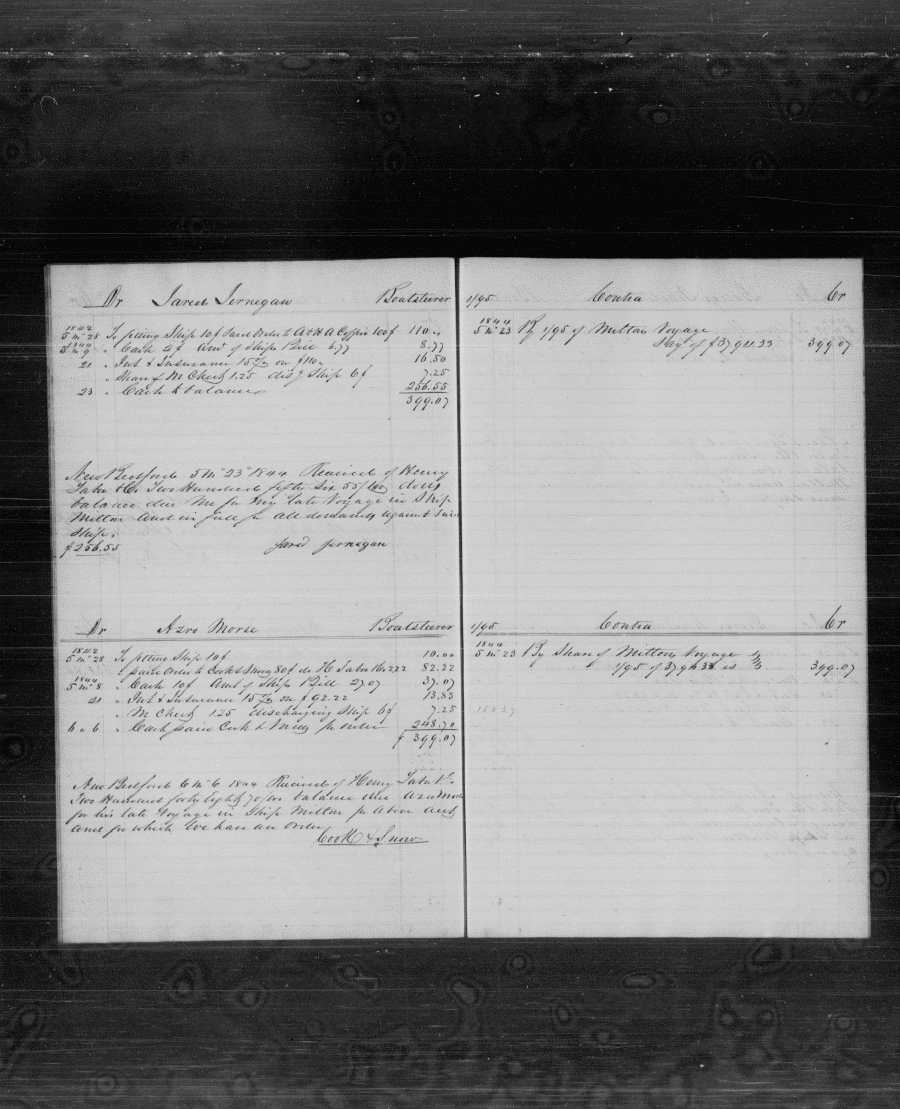 Dr Jared Jernegan Boatsteerer
1842
5 mo 28 To fitting Ship 10$ paid Order to A & H A Coffin 100$ 110.00
1844
5 mo 9 " Cash 2$ Amt of Ships Bill 6.77 8.77
21 " Int & Insurance 15 % on $110 16.50
" Share of M Chest 1.25 disg Ship 6$ 7.25
23 " Cash to balance 256.55
399.07
New Bedford 5 mo 23 1844 Received of Henry
Taber & Co Two Hundred fifty six 55/100 dolls
balance due me for my late Voyage in Ship
Milton and in full for all demands against said
Ship.
$256.55 Jared Jernegan
1/95 Contra Cr
1844
5 mo 23 By 1/95 of Miltons Voyage
Say of $37,911.33 399.07
Dr Azro Morse Boatsteerer
1842
5 mo 28 To fitting Ship 10$ 10.00
" paid Order to Cook & Snow 80$ do H Taber & Co 2.22 82.22
1844
5 mo 8 " Cash 10$ Amt of Ships Bill 27.07 37.07
21 " Int & Insurance 15 % on $92.22 13.83
" M Chest 1.25 discharging Ship 6$ 7.25
6 " 6 " Cash paid Cook & Snow per order 248.70
$ 399.07
New Bedford 6 mo 6 1844 Received of Henry Taber & Co
Two Hundred forty Eight 70/100 balance due Azro Morse
for his late Voyage in Ship Milton per above acct
and for which We have an Order
Cook & Snow
1/95 Contra Cr
1844
5 mo 23 By Share of Miltons Voyage
1/95 of is 399.07